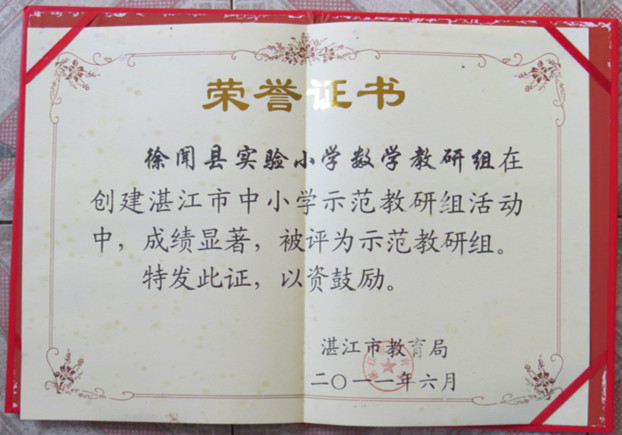 荣誉证书
徐闻县实验小学数学教研组在
创建湛江市中小学示范教研组活动
中，成绩显著，被评为示范教研组。
特发此证，以资鼓励。
湛江市教育局
二〇一一年六月